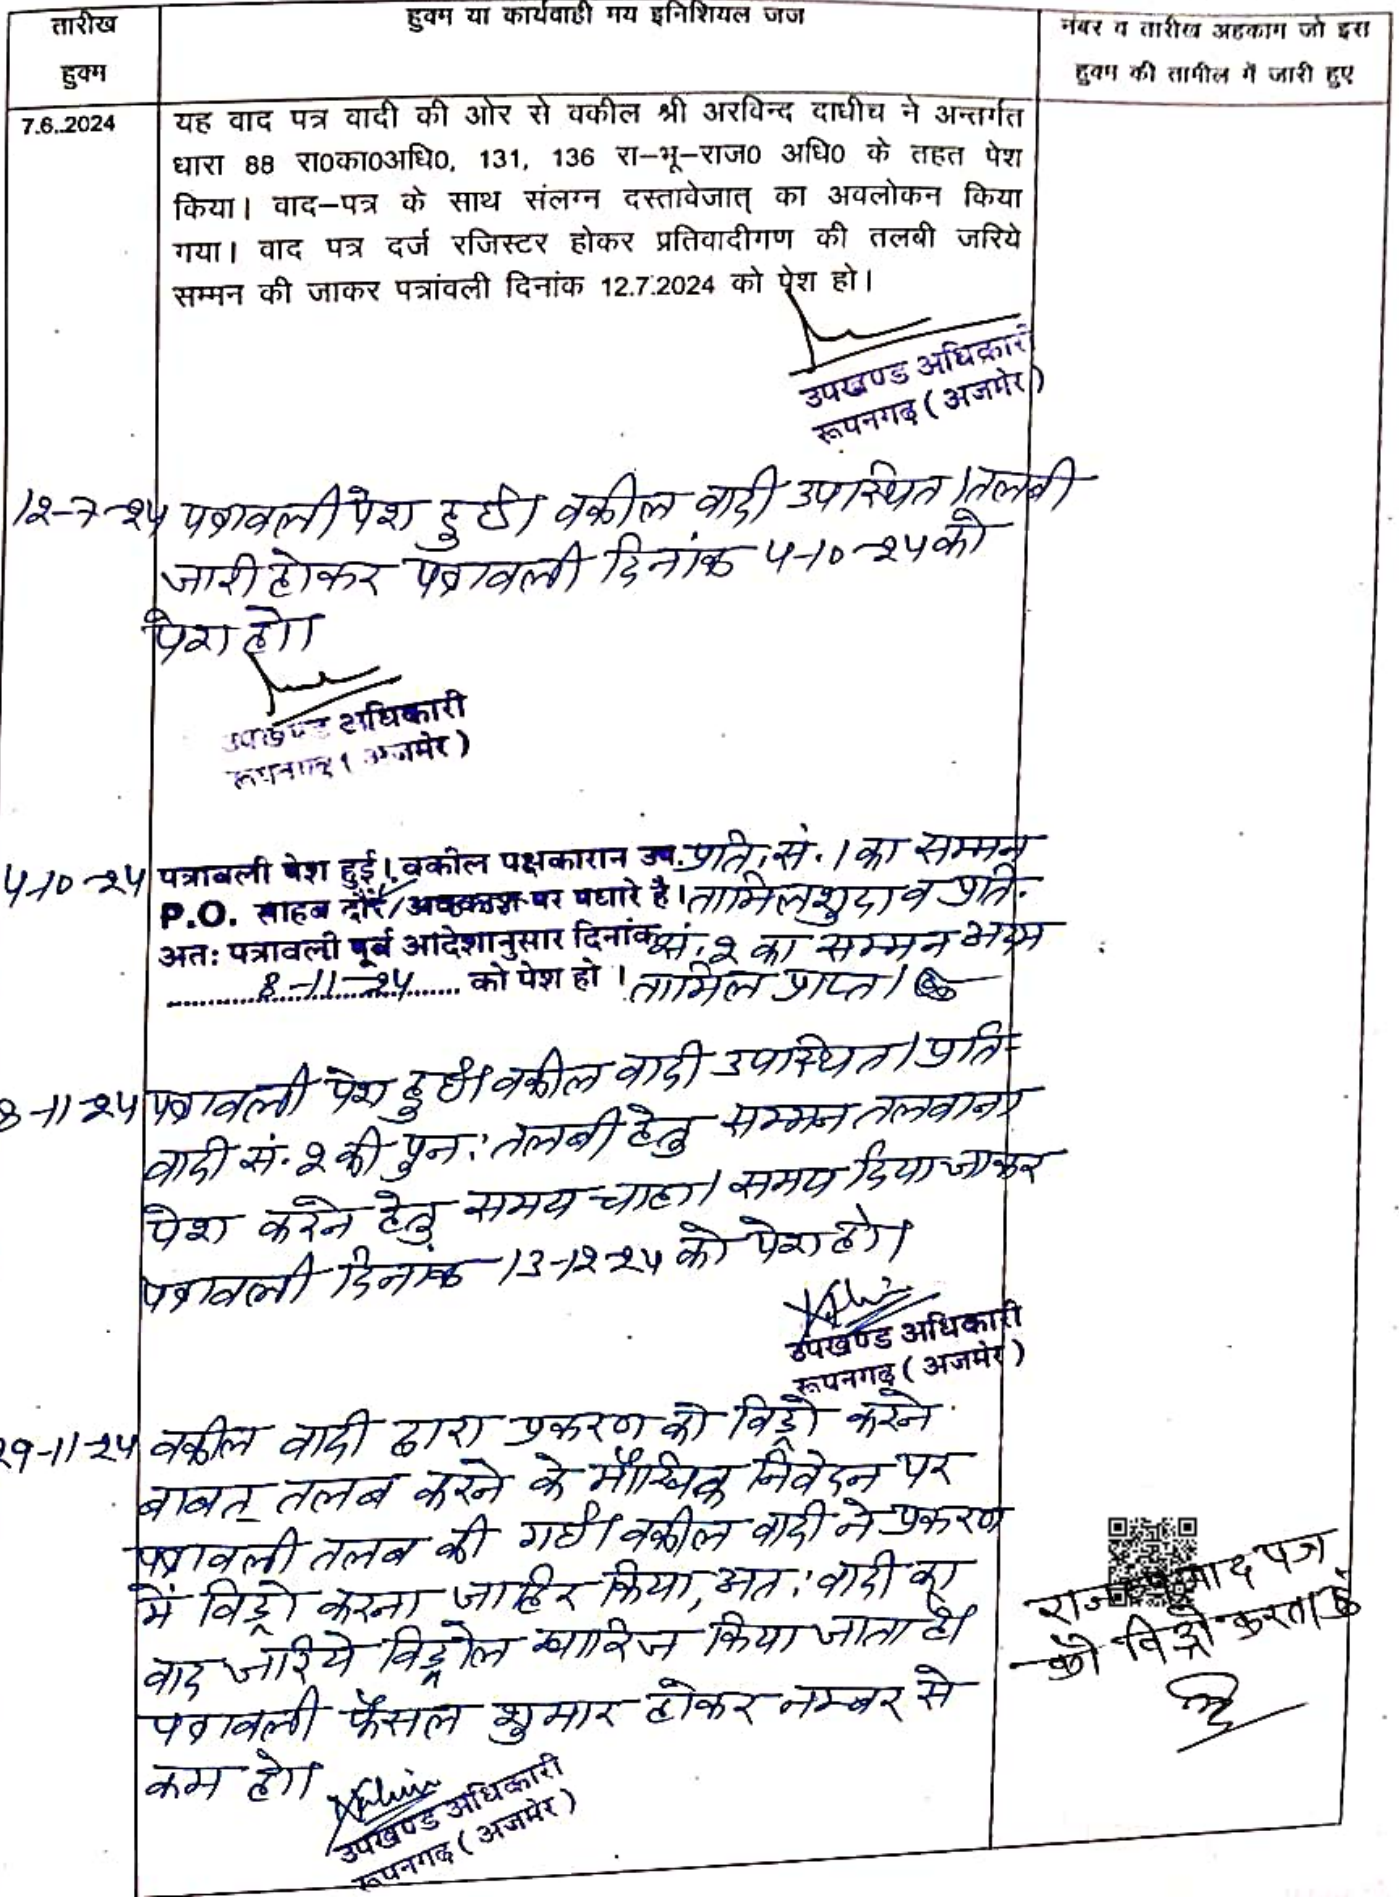 तारीख
हुक्म
हुक्म या कार्यवाही मय इनिशियल जज
नंबर व तारीख अहकाम जो इस
हुक्म की तामील में जारी हुए
7.6..2024
यह वाद पत्र वादी की ओर से वकील श्री अरविन्द दाधीच ने अन्तर्गत
धारा 88 रा0का0अधि0, 131, 136 रा–भू–राज0 अधि0 के तहत पेश
किया। वाद–पत्र के साथ संलग्न दस्तावेजात् का अवलोकन किया
गया। वाद पत्र दर्ज रजिस्टर होकर प्रतिवादीगण की तलबी जरिये
सम्मन की जाकर पत्रांवली दिनांक 12.7.2024 को पेश हो।
उपखण्ड अधिकारी
रूपनगढ़ (अजमेर)
12-7-24 पत्रावली पेश हुई। वकील वादी उपस्थित। तलबी
जारी होकर पत्रावली दिनांक 4-10-24 को
पेश हो।
उपखण्ड अधिकारी
रूपनगढ़ (अजमेर)
4-10-24 पत्रावली पेश हुई। वकील पक्षकारान उप. प्रति. सं. 1 का सम्मन
P.O. साहब दौरे/अवकाश पर पधारे है। तामिलशुदा व प्रति.
अतः पत्रावली पूर्व आदेशानुसार दिनांक सं. 2 का सम्मन अदम
8-11-24 को पेश हो। तामिल प्राप्त।
8-11-24 पत्रावली पेश हुई। वकील वादी उपस्थित। प्रति-
वादी सं. 2 की पुनः तलबी हेतु सम्मन तलवाना
पेश करने हेतु समय चाहा। समय दिया जाकर
पत्रावली दिनांक 13-12-24 को पेश हो।
उपखण्ड अधिकारी
रूपनगढ़ (अजमेर)
29-11-24 वकील वादी द्वारा प्रकरण को विड्रो करने
बाबत् तलब करने के मौखिक निवेदन पर
पत्रावली तलब की गई। वकील वादी ने प्रकरण
में विड्रो करना जाहिर किया, अतः वादी का
वाद जरिये विड्रोल खारिज किया जाता है।
पत्रावली फैसल शुमार होकर नम्बर से
कम हो।
उपखण्ड अधिकारी
रूपनगढ़ (अजमेर)
वाद पत्र
को विड्रो करता हूँ